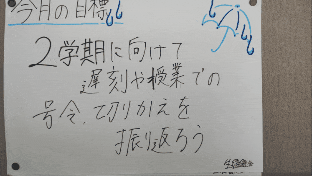 今月の目標
2学期に向けて
遅刻や授業での
号令、切りかえを
振り返ろう